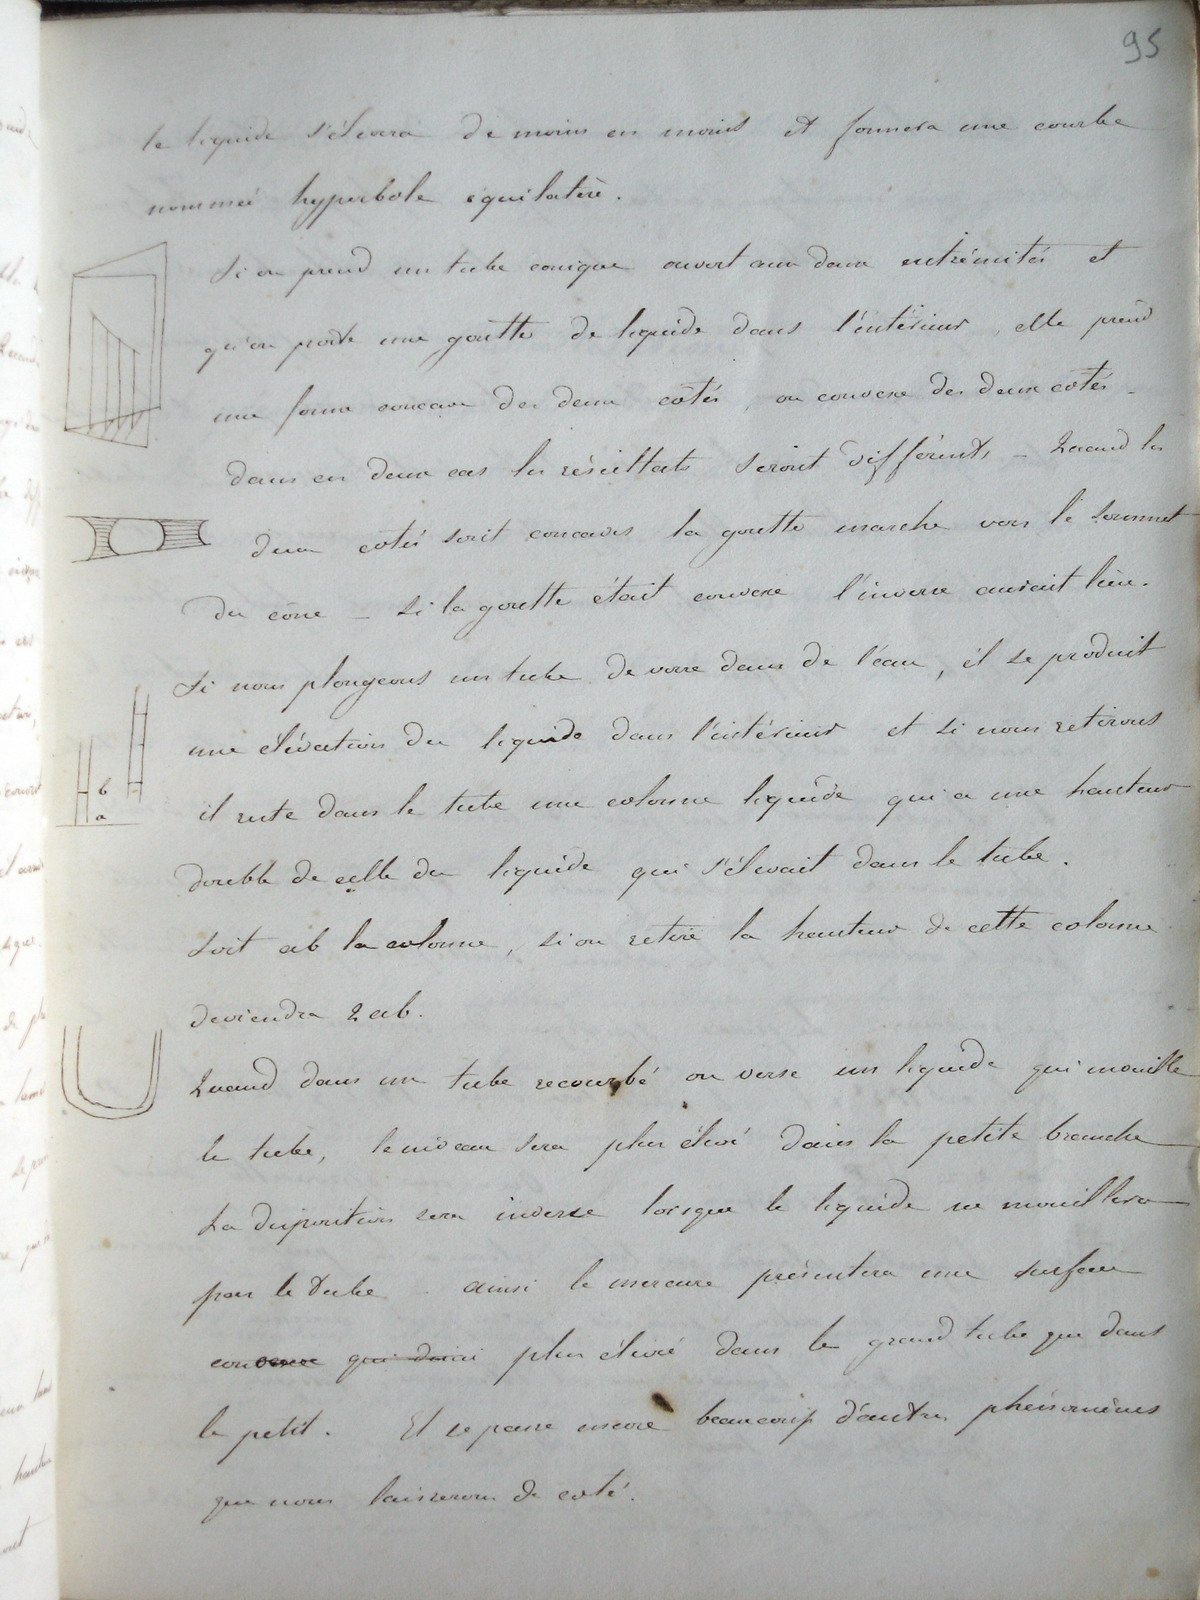 95
le liquide s'élevera de moins en moins et formera une courbe
nommée hyperbole équilatère.
Si on prend un tube conique ouvert aux deux extrémités et
qu'on porte une goutte de liquide dans l'intérieur, elle prend
une forme concave des deux côtés, ou convexe des deux cotés -
dans ces deux cas les résultats seront différents - Quand les
deux cotés sont concaves la goutte marche vers le sommet
du cône - Si la goutte était convexe l'inverse aurait lieu.
Si nous plongeons un tube de verre dans de l'eau, il se produit
une élévation du liquide dans l'intérieur et si nous retirons
il reste dans le tube une colonne liquide qui a une hauteur
double de celle du liquide qui s'élevait dans le tube.
b
a
Soit ab la colonne, si on retire la hauteur de cette colonne
deviendra 2 ab.
Quand dans un tube recourbé on verse un liquide qui mouille
le tube, le niveau sera plus élevé dans la petite branche
La disposition sera inverse lorsque le liquide ne mouillera
pas le tube. ainsi le mercure présentera une surface
convexe qui plus élevée dans le grand tube que dans
le petit. Il se passe encore beaucoup d'autres phénomènes
que nous laisserons de coté.